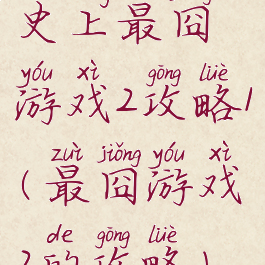 史上最囧
yóu xì gōng lüè
游戏2攻略1
zuì jiǒng yóu xì
(最囧游戏
de gōng lüè
2的攻略)